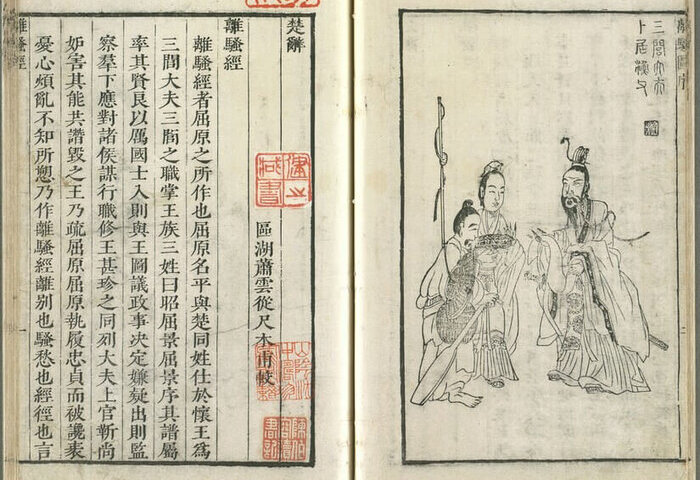 三閭大夫
卜居漁父
楚辭
區湖蕭雲從尺木甫較
離騷經
離騷經者屈原之所作也屈原名平與楚同姓仕於懷王為
三閭大夫三閭之職掌王族三姓曰昭屈景屈景序其譜屬
率其賢良以厲國士入則與王圖議政事決定嫌疑出則監
察羣下應對諸侯謀行職修王甚珍之同列大夫上官靳尚
妒害其能共譖毀之王乃疏屈原屈原執履忠貞而被讒衺
憂心煩亂不知所愬乃作離騷經離別也騷愁也經徑也言
離騷經